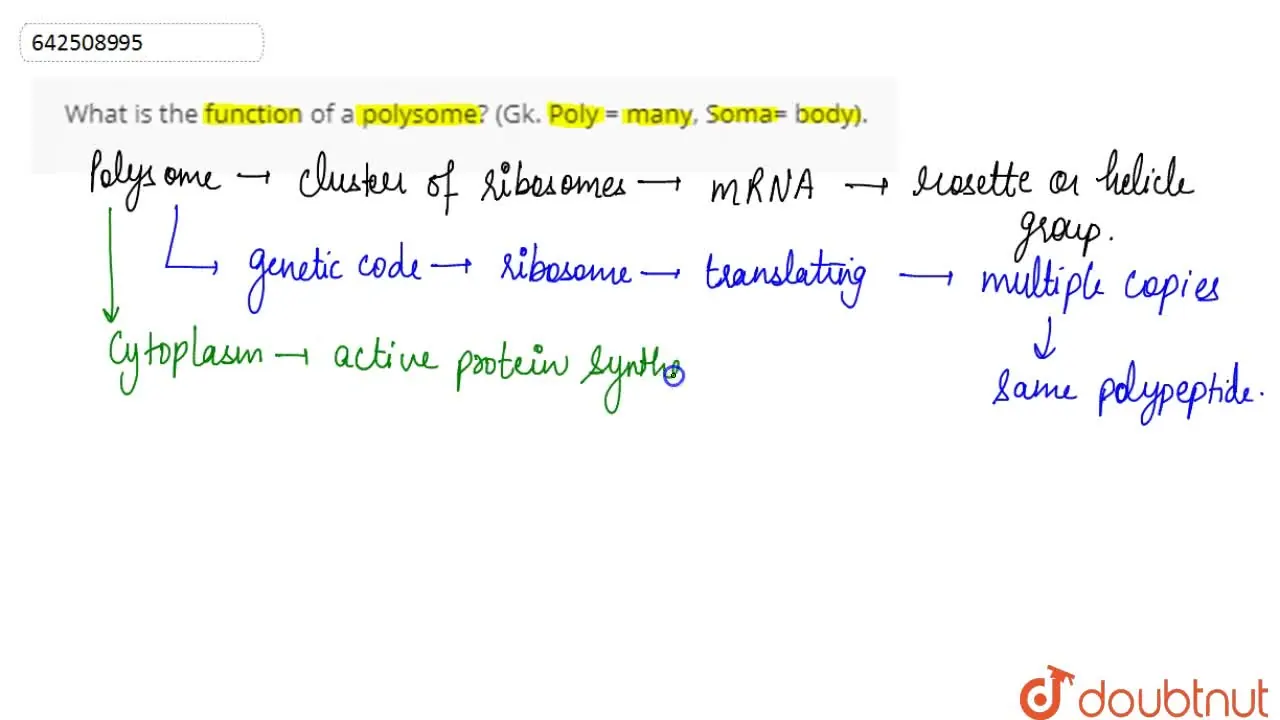 642508995
What is the function of a polysome? (Gk. Poly = many, Soma= body).
Polysome → cluster of ribosomes → mRNA → rosette or helicle
group.
genetic code → ribosome → translating → multiple copies
↓
same polypeptide.
Cytoplasm → active protein synthe
doubtnut